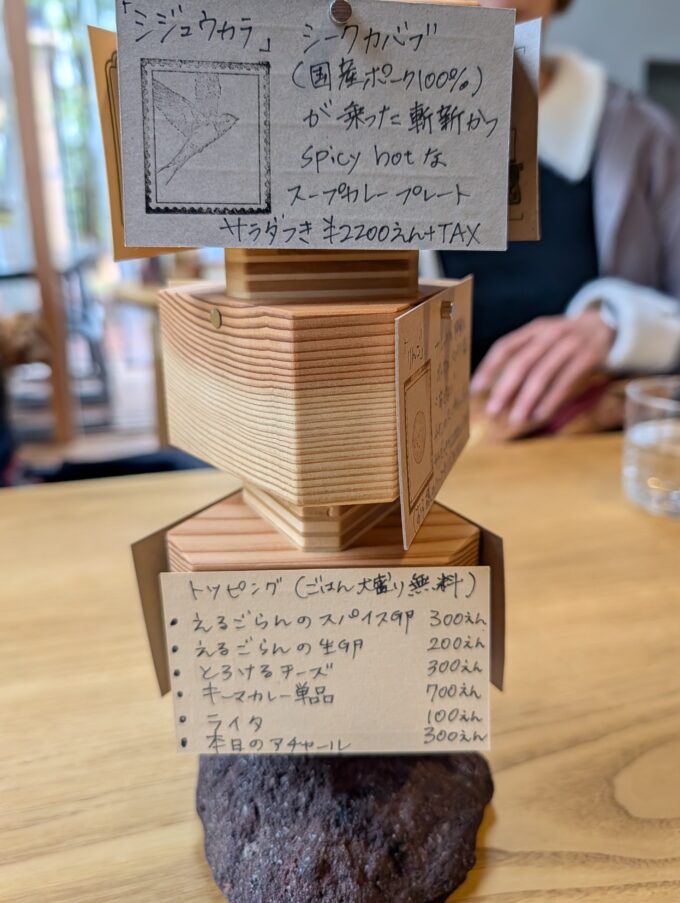 「シジュウカラ」
シークカバブ
(国産ポーク100%)
が乗った斬新かつ
spicy hotな
スープカレープレート
サラダつき ¥2200えん+TAX
「りんご」
トッピング (ごはん大盛り無料)
• えるごらんのスパイス卵 300えん
• えるごらんの生卵 200えん
• とろけるチーズ 300えん
• キーマカレー単品 700えん
• ライタ 100えん
• 本日のアチャール 300えん